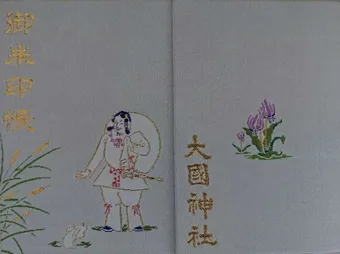 御朱印帳
大國神社